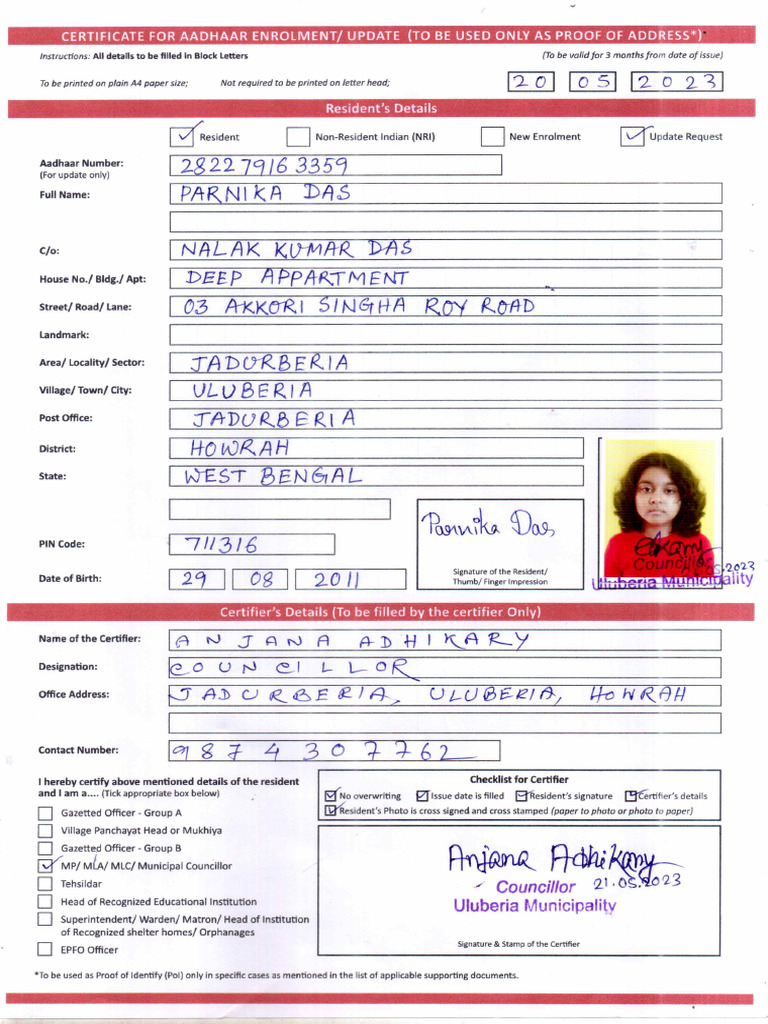 CERTIFICATE FOR AADHAAR ENROLMENT/ UPDATE (TO BE USED ONLY AS PROOF OF ADDRESS*)
Instructions: All details to be filled in Block Letters (To be valid for 3 months from date of issue)
To be printed on plain A4 paper size; Not required to be printed on letter head; 20 05 2023
Resident's Details
Resident Non-Resident Indian (NRI) New Enrolment Update Request
Aadhaar Number: 2822 7916 3359
(For update only)
Full Name: PARNIKA DAS
C/o: NALAK KUMAR DAS
House No./ Bldg./ Apt: DEEP APPARTMENT
Street/ Road/ Lane: 03 AKKORI SINGHA ROY ROAD
Landmark:
Area/ Locality/ Sector: JADURBERIA
Village/ Town/ City: ULUBERIA
Post Office: JADURBERIA
District: HOWRAH
State: WEST BENGAL
PIN Code: 711316
Parnika Das
Signature of the Resident/
Thumb/ Finger Impression
Councillor
Uluberia Municipality
Date of Birth: 29 08 2011
Certifier's Details (To be filled by the certifier Only)
Name of the Certifier: ANJANA ADHIKARY
Designation: COUNCILLOR
Office Address: JADURBERIA, ULUBERIA, HOWRAH
Contact Number: 9874307762
I hereby certify above mentioned details of the resident
and I am a.... (Tick appropriate box below)
Gazetted Officer - Group A
Village Panchayat Head or Mukhiya
Gazetted Officer - Group B
MP/ MLA/ MLC/ Municipal Councillor
Tehsildar
Head of Recognized Educational Institution
Superintendent/ Warden/ Matron/ Head of Institution
of Recognized shelter homes/ Orphanages
EPFO Officer
Checklist for Certifier
No overwriting Issue date is filled Resident's signature Certifier's details
Resident's Photo is cross signed and cross stamped (paper to photo or photo to paper)
Anjana Adhikary
Councillor 21.05.2023
Uluberia Municipality
Signature & Stamp of the Certifier
*To be used as Proof of Identify (PoI) only in specific cases as mentioned in the list of applicable supporting documents.